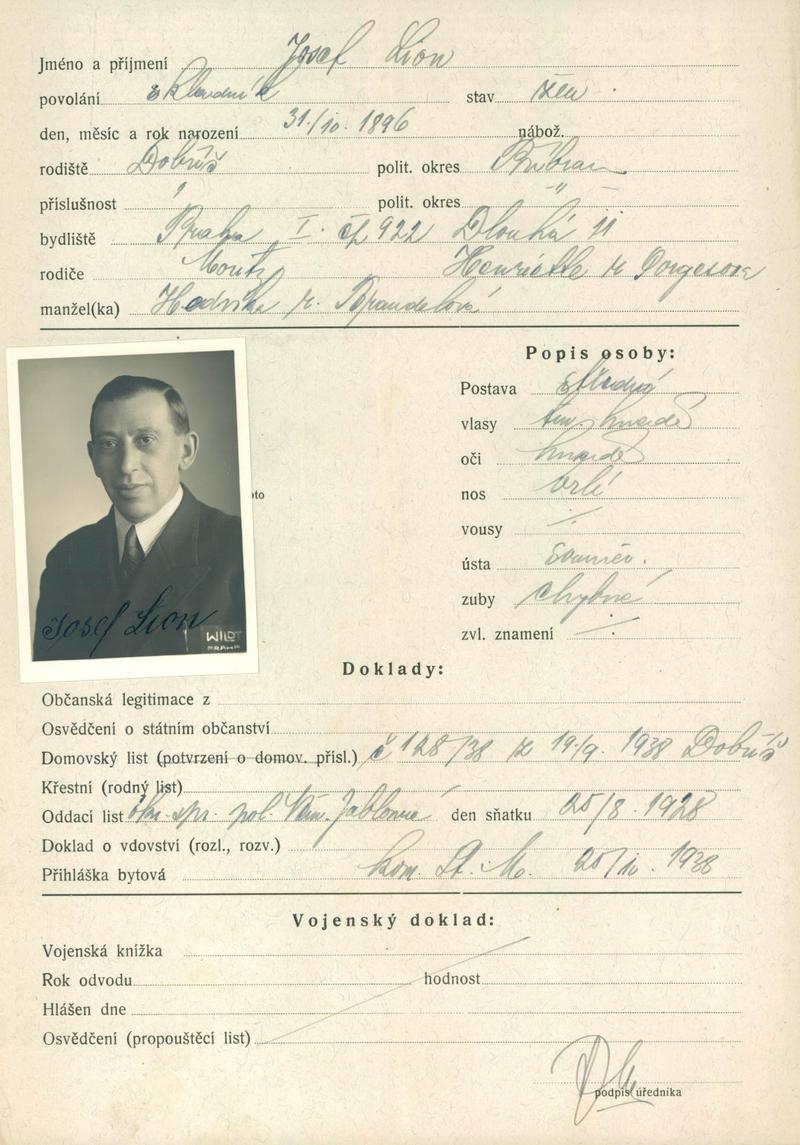 Jméno a příjmení Josef Lion
povolání skladník stav žen.
den, měsíc a rok narození 31/10. 1896 nábož.
rodiště Dobříš polit. okres Příbram
příslušnost " polit. okres "
bydliště Praha I. čp 922 Dlouhá 11
rodiče Moritz Henriette r Porgesova
manžel(ka) Hedvika r. Brandelová
Popis osoby:
Postava střední
vlasy tm. hnědé
oči hnědé
oto
nos orlí
vousy ./.
ústa souměr.
zuby chybné
zvl. znamení ./.
Josef Lion
WILDT
PRAHA
Doklady:
Občanská legitimace z
Osvědčení o státním občanství
Domovský list (potvrzení o domov. přísl.) č 128/38 z 19./9. 1938 Dobříš
Křestní (rodný list)
Oddací list okr. spr. pol. Něm. Jablonné den sňatku 25/8. 1928
Doklad o vdovství (rozl., rozv.)
Přihláška bytová kom. St. M. 25/10. 1938
Vojenský doklad:
Vojenská knížka
Rok odvodu hodnost
Hlášen dne
Osvědčení (propouštěcí list)
podpis úředníka